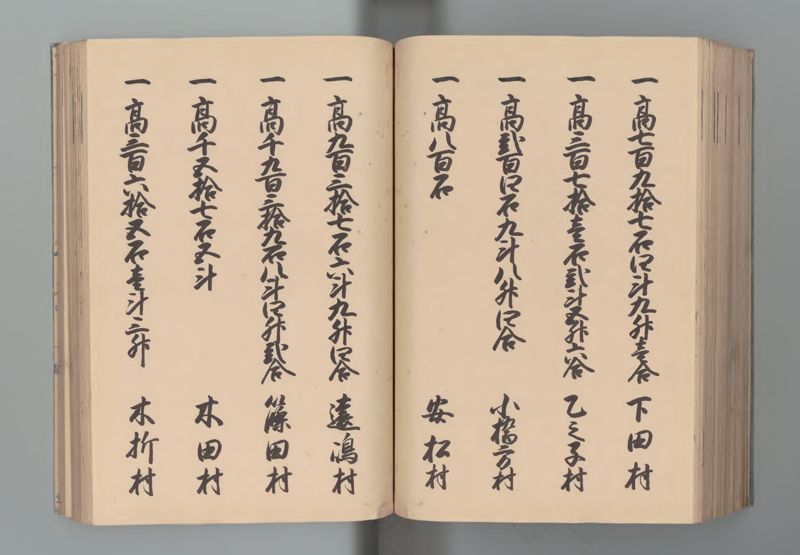 一高七百九拾七石四斗九升壹合 下田村
一高三百七拾壹石貳斗五升六合 乙之子村
一高貳百四石九斗八升四合 小橋方村
一高八百石 安松村
一高九百三拾七石六斗九升四合 遠嶋村
一高千九百三拾九石八斗四升貳合 篠田村
一高千五拾七石五斗 木田村
一高三百六拾五石壹斗三升 木折村